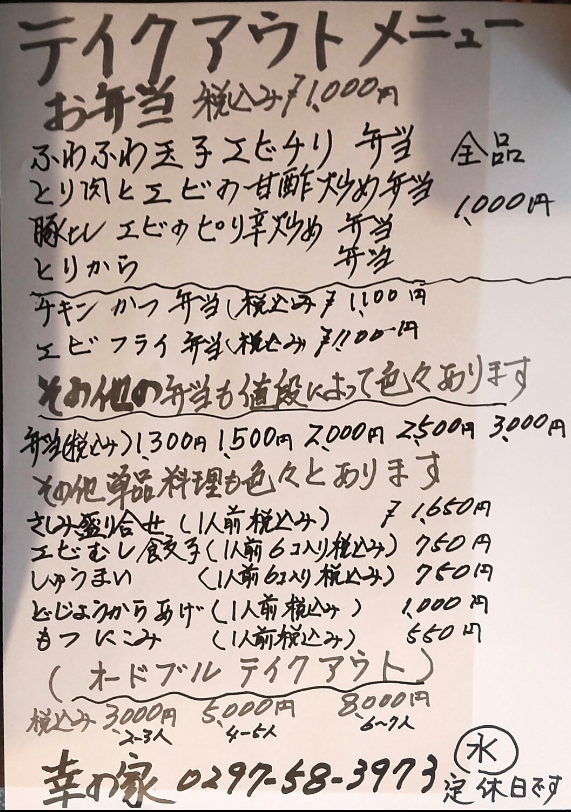 テイクアウトメニュー
お弁当 税込み¥1,000円
ふわふわ玉子エビチリ 弁当 全品
とり肉とエビの甘酢炒め弁当 1,000円
豚とエビのピリ辛炒め 弁当
とりから 弁当
チキンかつ弁当(税込み¥1,100円
エビフライ弁当(税込み ¥1,100円
その他の弁当も値段によって色々あります
弁当(税込み)1,300円 1,500円 2,000円 2,500円 3,000円
その他単品料理も色々とあります
さしみ盛り合せ(1人前税込み) ¥1,650円
エビむし餃子(1人前6コ入り税込み) 750円
しゅうまい (1人前6コ入り税込み) 750円
どじょうからあげ(1人前税込み) 1,000円
もつにこみ (1人前税込み) 550円
(オードブルテイクアウト)
税込み 3,000円 5,000円 8,000円
2~3人 4~5人 6~7人
幸の家 0297-58-3973 水
定休日です